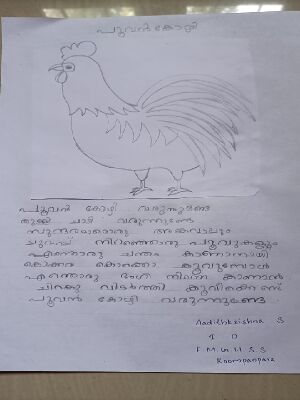 പൂവൻകോഴി
പൂവൻ കോഴി വരുന്നുണ്ടേ
ചാടി വരുന്നുണ്ടേ
സുന്ദരമാമൊരു അങ്കവാലും
ചുവപ്പ് നിറഞ്ഞൊരു പൂവുകളും
എന്തൊരു ചന്തം കാണാനായി
കൊക്കര കൊക്കോ കൂവുമ്പോൾ
എന്തൊരു ഭംഗി നിന്നെ കാണാൻ
ചിറകു വിടർത്തി കൂവിക്കൊണ്ട്
പൂവൻ കോഴി വരുന്നുണ്ടേ
Aadithkrishna S
1 D
F M G H S S
Koompanpara